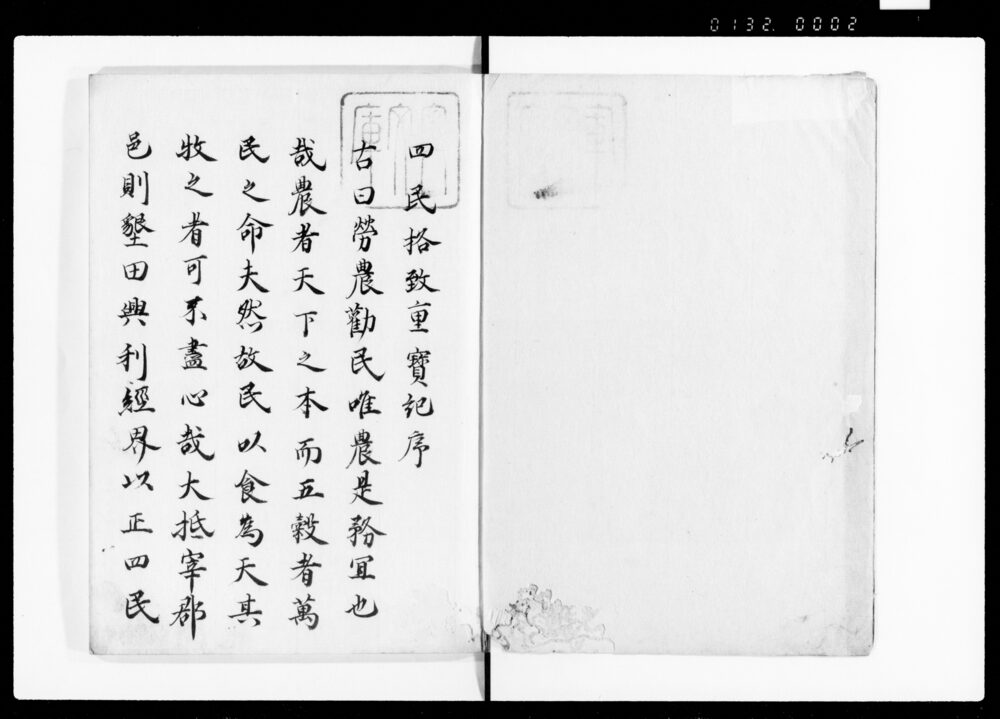 0132. 0002
四民格致重寶記序
古曰勞農勸民唯農是務宜也
哉農者天下之本而五穀者萬
民之命夫然故民以食為天其
牧之者可不盡心哉大抵宰郡
邑則墾田興利經界以正四民